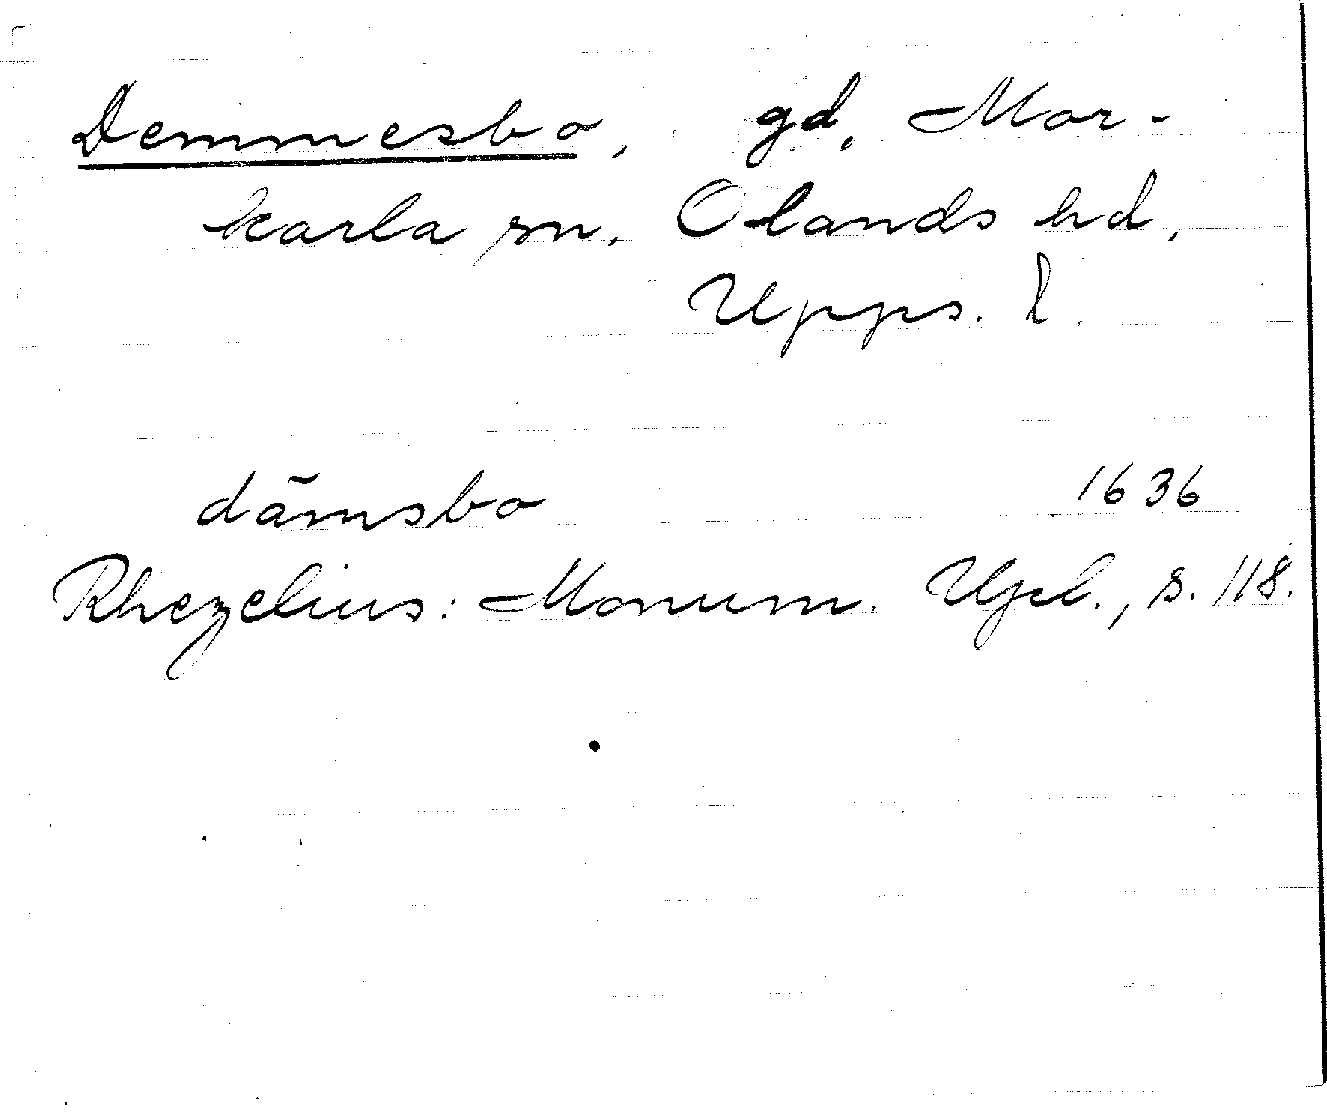 Demmesbo, gd, Mor-
karla sn. Olands hd,
Upps. l.
dämsbo 1636
Rhezelius: Monum. Upl., s. 118.